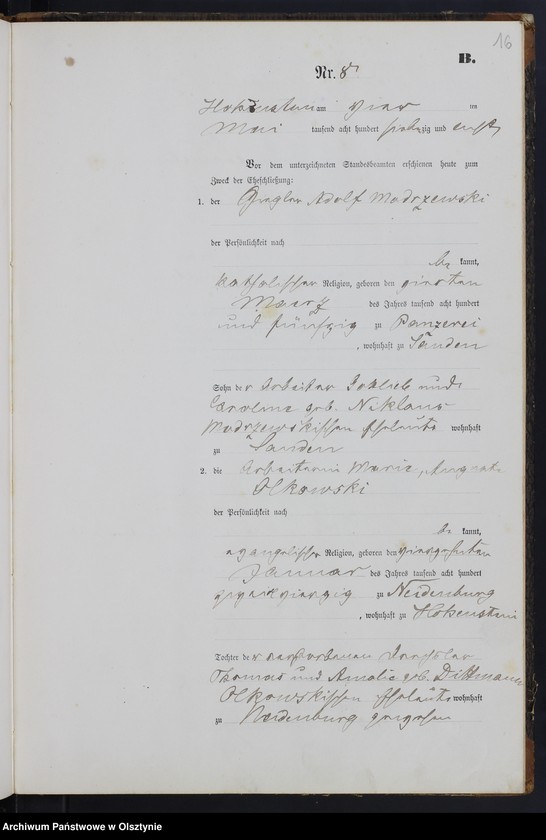 16
B.
Nr. 8
Hohenstein am vier ten
Mai tausend acht hundert siebzig und acht
Vor dem unterzeichneten Standesbeamten erschienen heute zum
Zweck der Eheschließung:
1. der Adolf Modrzewski
der Persönlichkeit nach
be kannt,
katholischer Religion, geboren den vierten
Maerz des Jahres tausend acht hundert
und fünfzig zu Panzerei
, wohnhaft zu Sauden
Sohn der Arbeiter Gottlieb und
Caroline geb. Niklaus
Modrzewskischen Eheleute wohnhaft
zu Sauden
2. die Arbeiterin Marie, Auguste
Olkowski
der Persönlichkeit nach
be kannt,
evangelischer Religion, geboren den vierzehnten
Januar des Jahres tausend acht hundert
zu Neidenburg
, wohnhaft zu Hohenstein
Tochter der verstorbenen
Thomas und Amalie geb. Dittmann
Olkowskischen Eheleute wohnhaft
zu Neidenburg gewesen
Archiwum Państwowe w Olsztynie